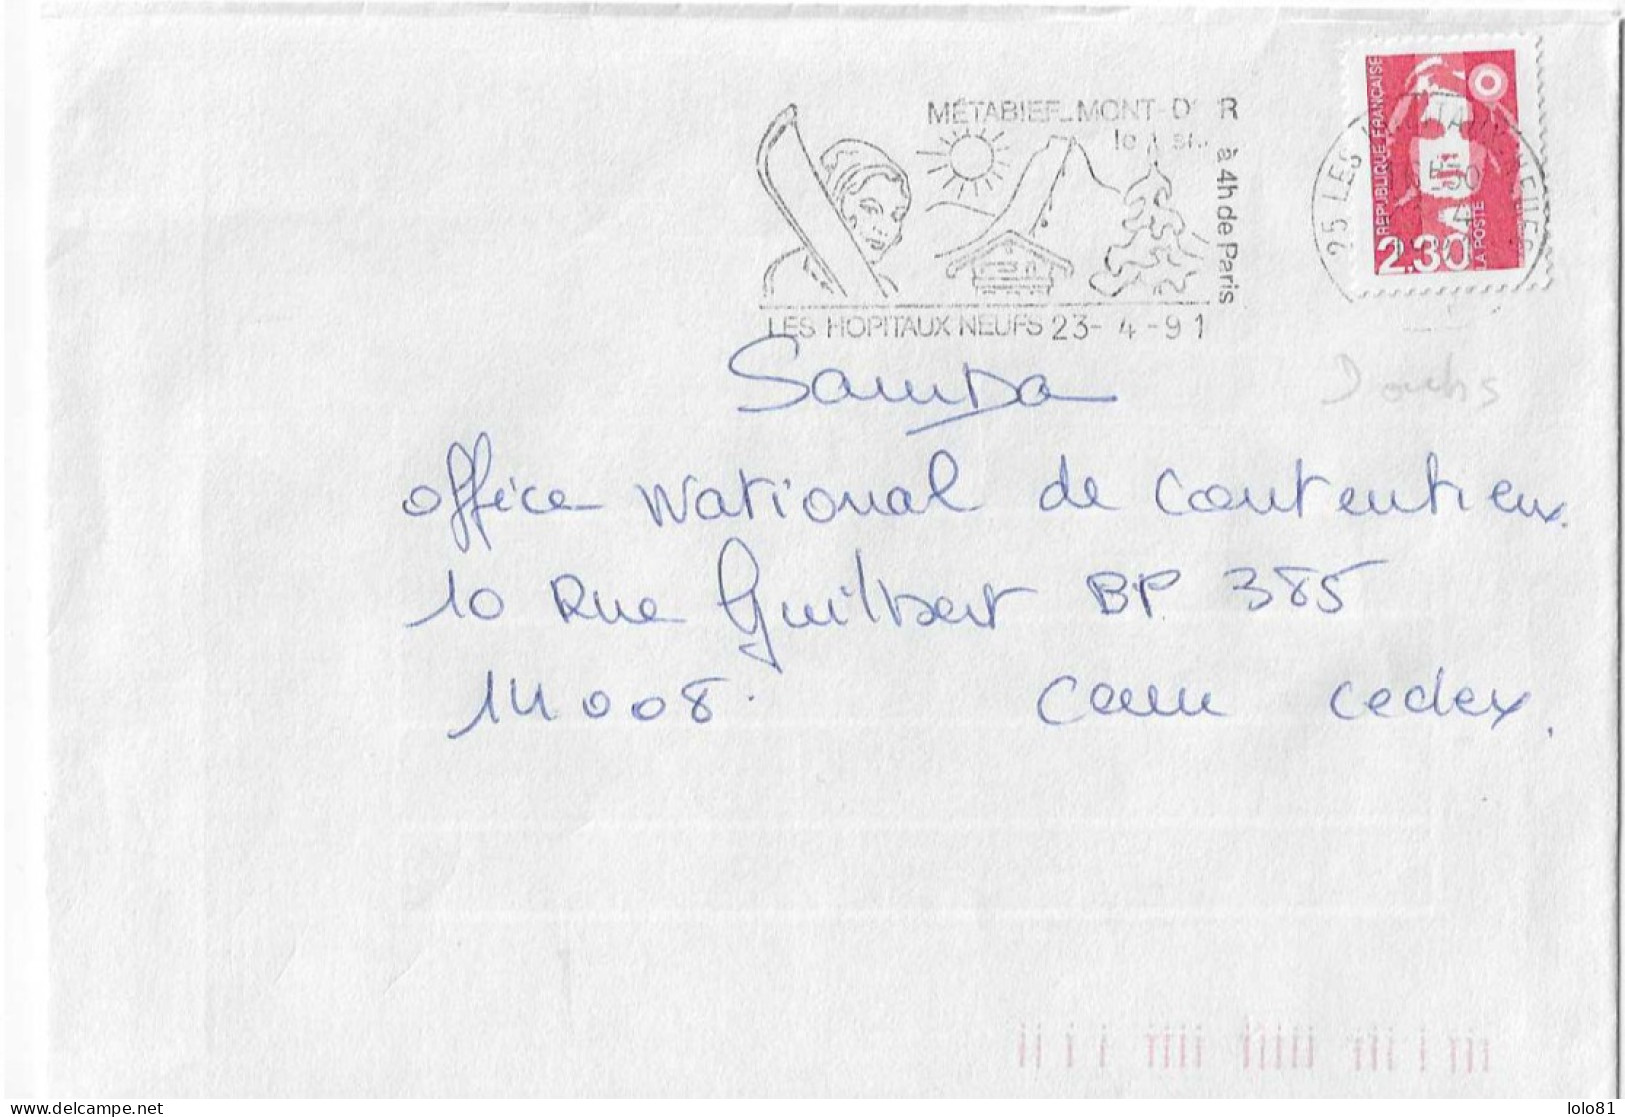 MÉTABIEF_MONT-D'OR
à 4h de Paris
LES HOPITAUX NEUFS 23- 4 -91
25 LES
REPUBLIQUE FRANÇAISE
2,30
LA POSTE
Doubs
Samda
office National de Contentieux.
10 Rue Guilbert BP 385
14008. Caen cedex.
lolo81